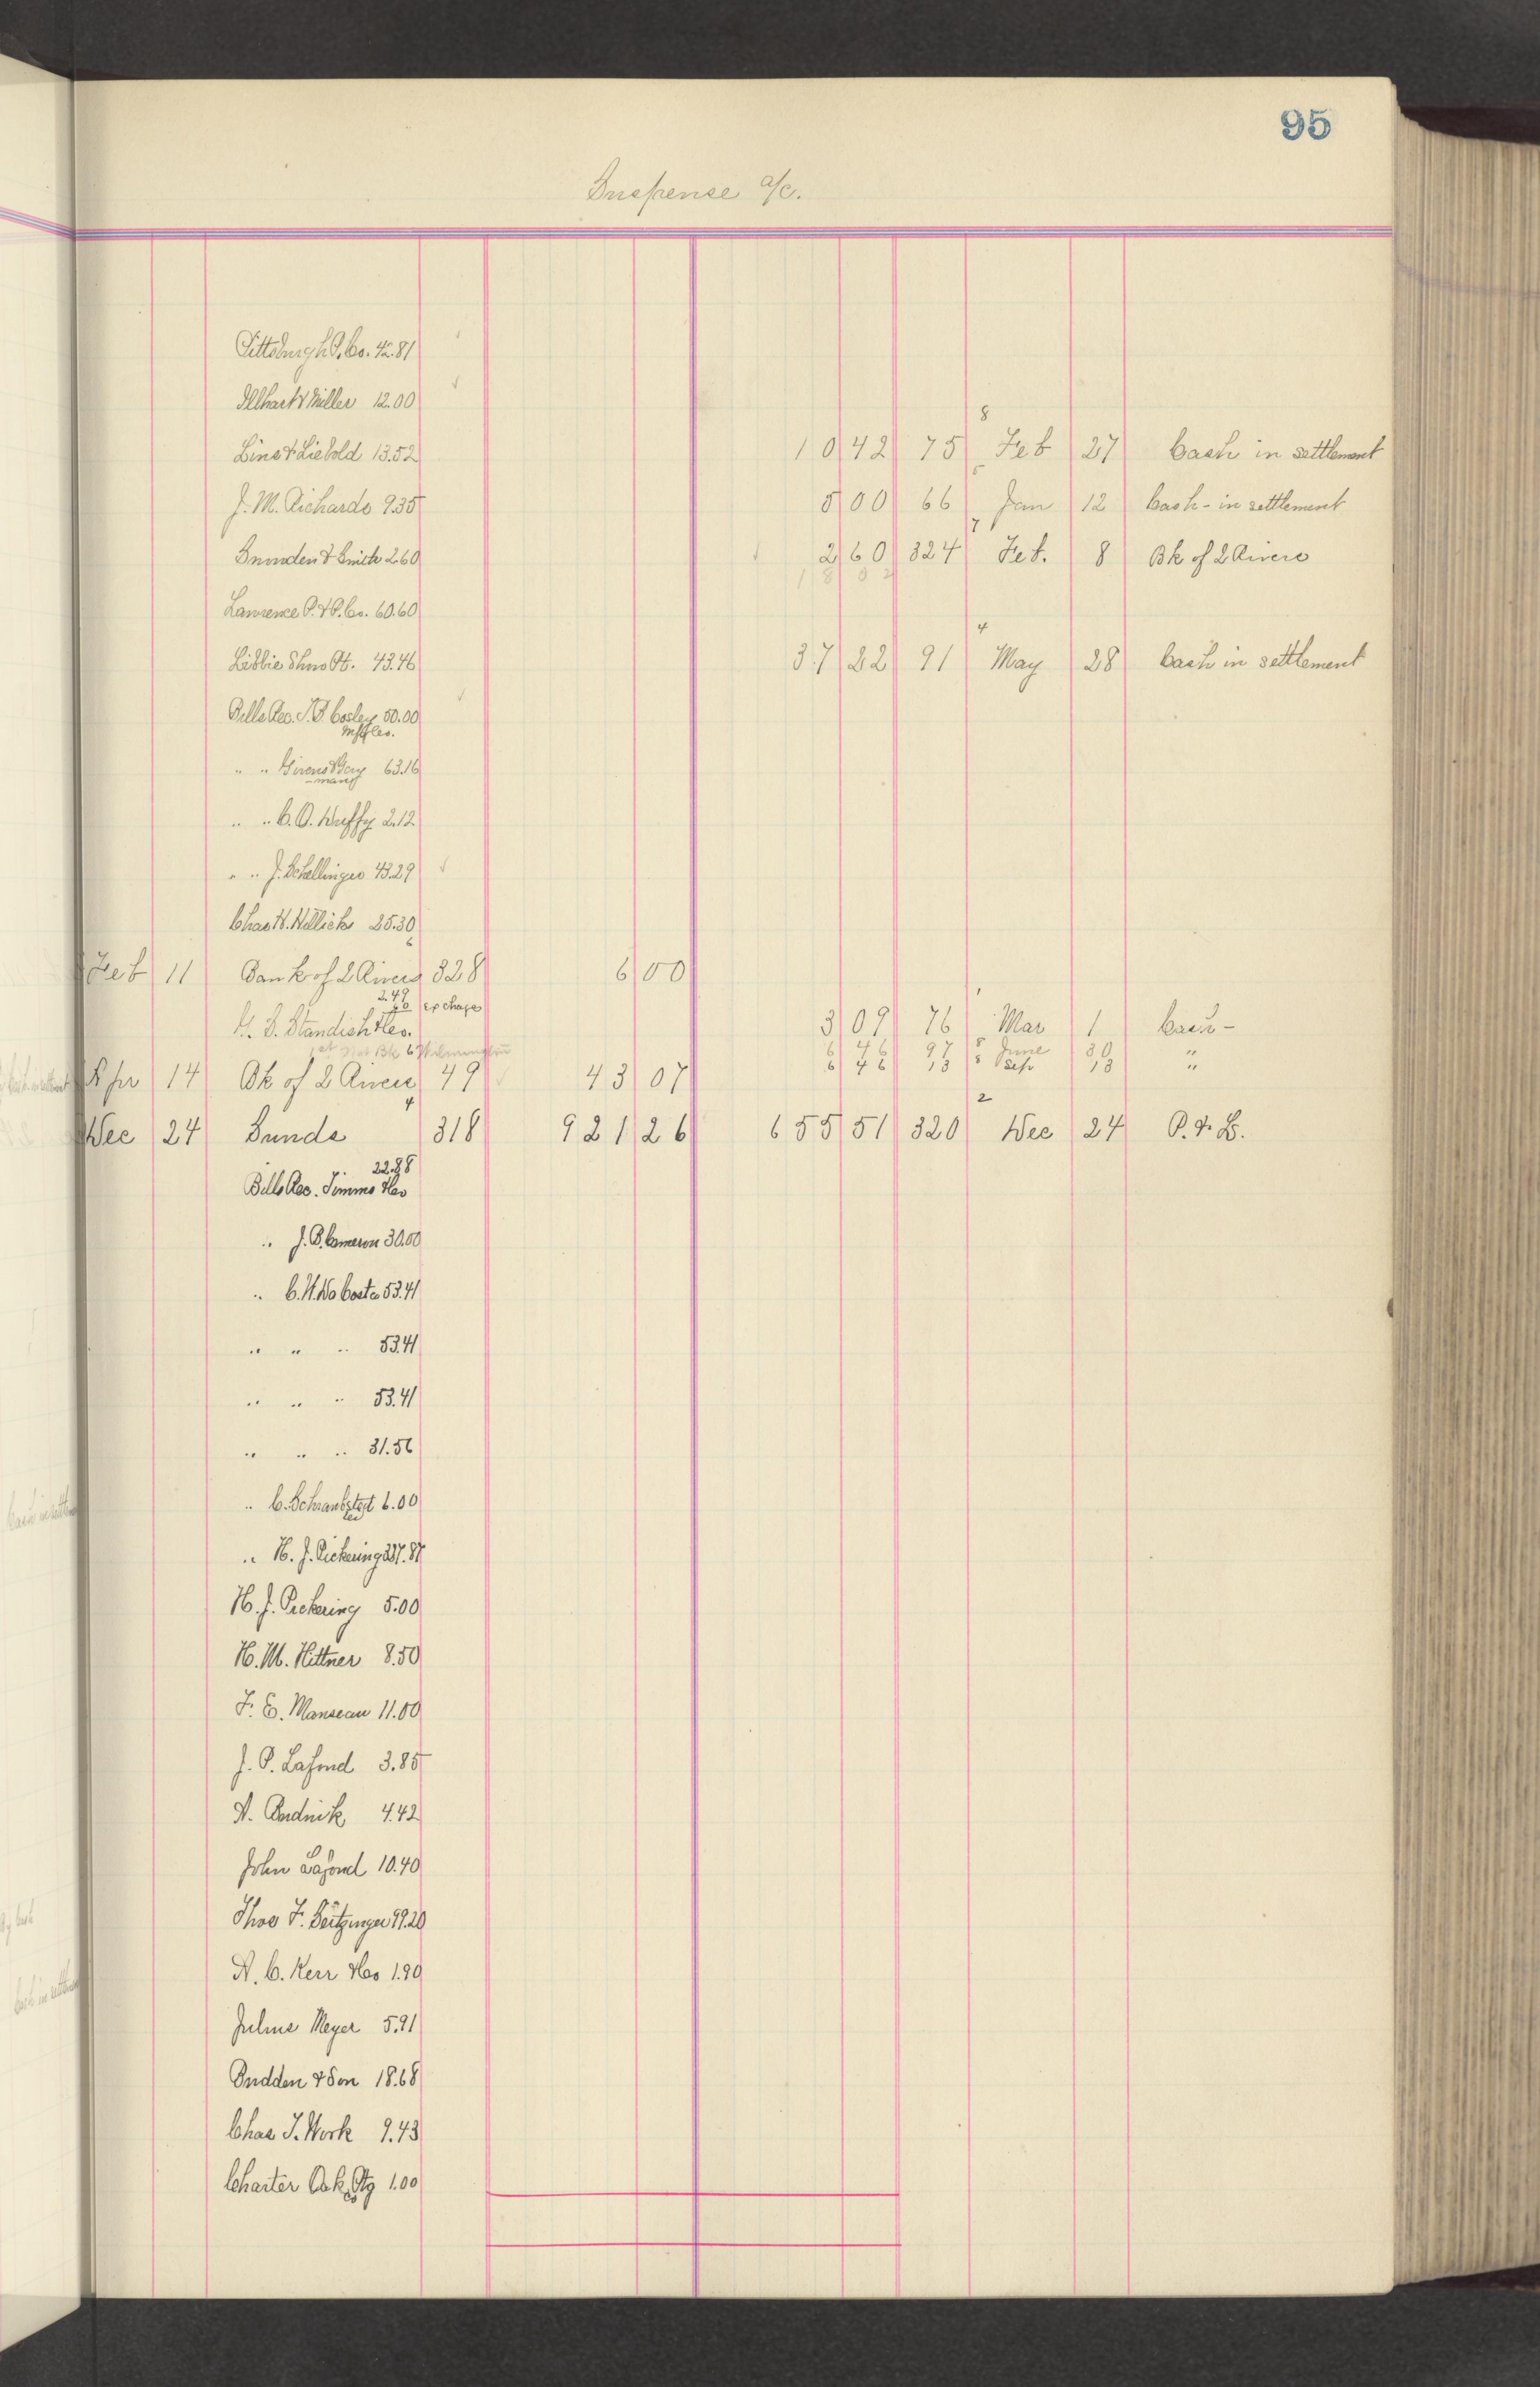 95
Suspense a/c.
Pittsburgh P. Co. 42.81
Ilhart & Miller 12.00
8
Lins & Liebold 13.52 10 42 75 Feb 27 Cash in settlement
J. M. Richards 9.35 5 00 66 Jan 12 Cash - in settlement
7
Snowden & Smith 2.60 2 60 324 Feb. 8 Bk of 2 Rivers
18 02
Lawrence P. & P. Co. 60.60
4
Libbie 43.46 37 22 91 May 28 Cash in settlement
Bills Rec. J. P. Cosley 50.00
" " 63.16
" " C. O. Huffy 2.12
" " J. Schallinger 43.29
Chas H. Willick 25.30
6
Feb 11 Bank of 2 Rivers 328 6 00
2.49
exchage 1
H. S. Standish & Co. 3 09 76 Mar 1 Cash -
6 46 97 5 June 30 "
Apr 14 Bk of 2 Rivers 49 43 07 6 46 13 5 Sep 13 "
4 2
Dec 24 Sunds 318 921 26 655 51 320 Dec 24 P. & L.
22.88
Bills Rec. Simms & Co
" J. B. Cameron 30.00
" C. H. Da Costa 53.41
" " " 53.41
" " " 53.41
" " " 31.56
" C. Schraubstadter 6.00
" H. J. Pickering 237.87
H. J. Pickering 5.00
H. M. Hittner 8.50
F. E. Manseau 11.00
J. P. Lafond 3.85
A. Budnik 4.42
John Lafond 10.40
Thos F. Beitzinger 99.20
A. C. Kerr & Co 1.90
Julius Meyer 5.91
Rudden & Son 18.68
Chas J. Work 9.43
Charter Oak Ptg Co 1.00